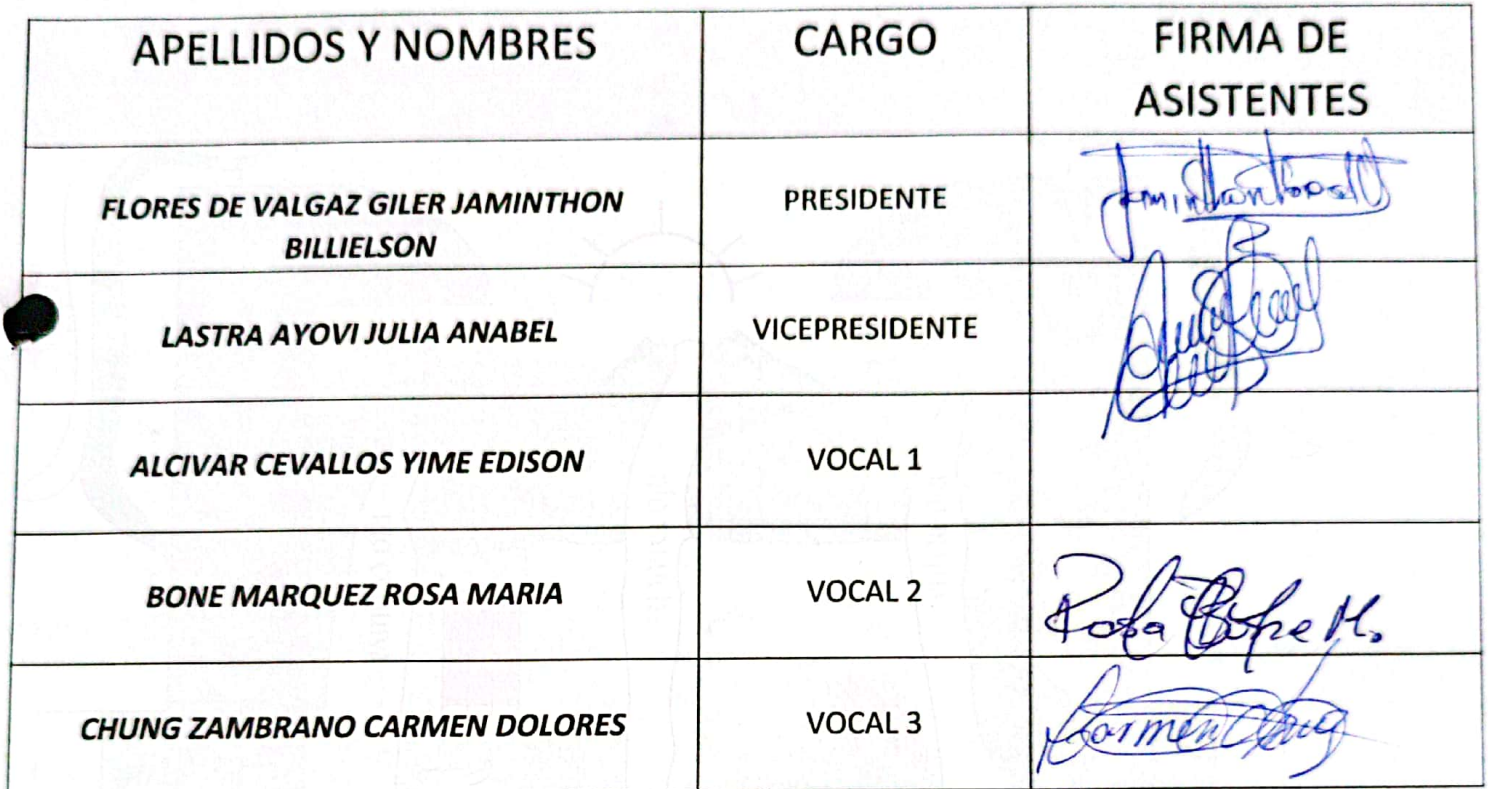 APELLIDOS Y NOMBRES
CARGO
FIRMA DE
ASISTENTES
FLORES DE VALGAZ GILER JAMINTHON
BILLIELSON
PRESIDENTE
LASTRA AYOVI JULIA ANABEL
VICEPRESIDENTE
ALCIVAR CEVALLOS YIME EDISON
VOCAL 1
BONE MARQUEZ ROSA MARIA
VOCAL 2
Rosa Bone M.
CHUNG ZAMBRANO CARMEN DOLORES
VOCAL 3
Carmen Chung